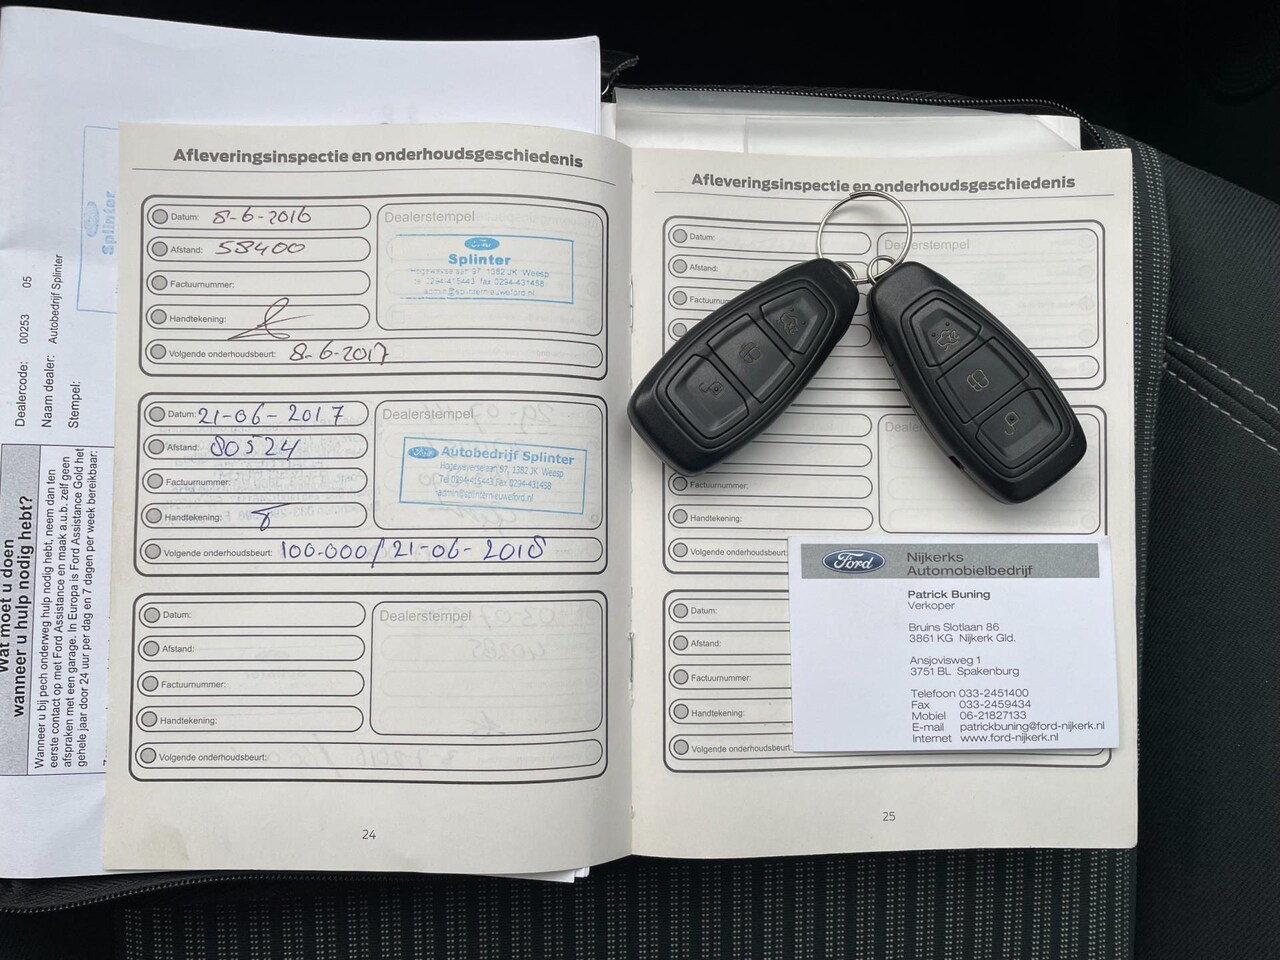 Splinter
Dealercode: 00253 05
Naam dealer: Autobedrijf Splinter
Stempel:
Wat moet u doen
wanneer u hulp nodig hebt?
Wanneer u bij pech onderweg hulp nodig hebt, neem dan ten
eerste contact op met Ford Assistance en maak a.u.b. zelf geen
afspraken met een garage. In Europa is Ford Assistance Gold het
gehele jaar door 24 uur per dag en 7 dagen per week bereikbaar:
Afleveringsinspectie en onderhoudsgeschiedenis
Datum: 8-6-2016
Afstand: 58400
Factuurnummer:
Handtekening:
Volgende onderhoudsbeurt: 8-6-2017
Dealerstempel
Ford
Splinter
1382 JK Weesp
fax 0294-431458
Datum: 21-06-2017
Afstand: 80524
Factuurnummer:
Handtekening:
Volgende onderhoudsbeurt: 100.000/21-06-2018
Dealerstempel
Ford Autobedrijf Splinter
Hogeweyerselaan 97, 1382 JK Weesp
Tel 0294-415443 Fax 0294-431458
admin@splinternieuwsford.nl
Datum:
Afstand:
Factuurnummer:
Handtekening:
Volgende onderhoudsbeurt:
Dealerstempel
24
Afleveringsinspectie en onderhoudsgeschiedenis
Datum:
Afstand:
Factuurnum
Dealerstempel
Deale
Factuurnummer:
Handtekening:
Volgende onderhoudsbeurt
Datum:
Afstand:
Factuurnummer:
Handtekening:
Volgende onderhoudsbeurt:
25
Ford
Nijkerks
Automobielbedrijf
Patrick Buning
Verkoper
Bruins Slotlaan 86
3861 KG Nijkerk Gld.
Ansjovisweg 1
3751 BL Spakenburg
Telefoon 033-2451400
Fax 033-2459434
Mobiel 06-21827133
E-mail patrickbuning@ford-nijkerk.nl
Internet www.ford-nijkerk.nl